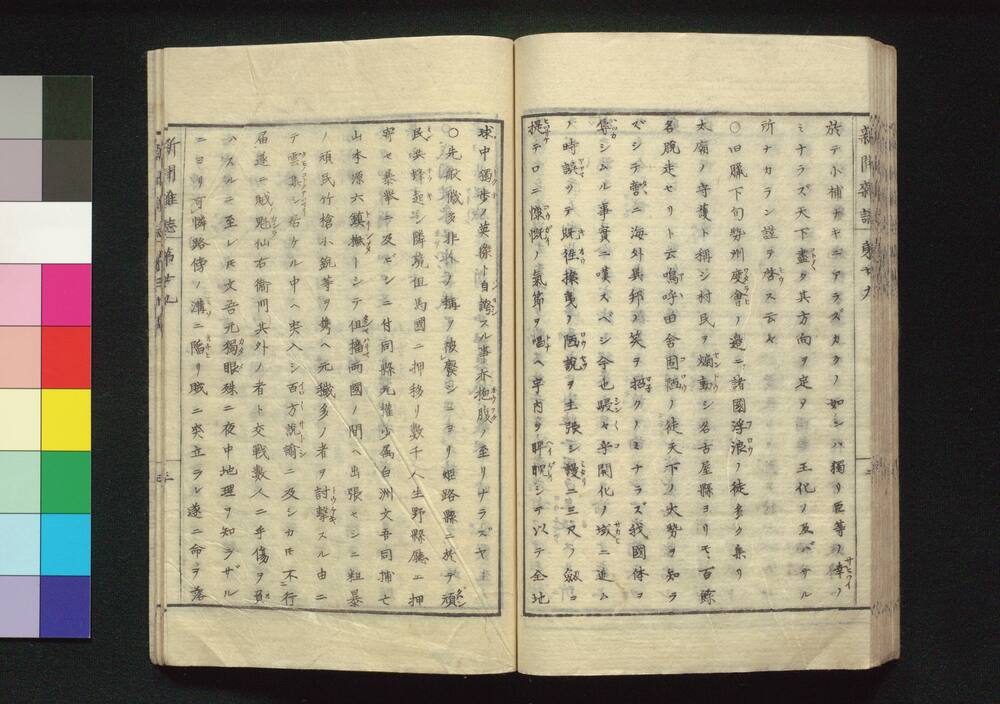 新聞雜誌
於テ小補ナキニアラズカクノ如シバ獨リ臣等ノ幸ノ
ミナラズ天下盡ク其方向ヲ定ヲ 王化ノ及バザル
所ナカラン謹テ啓ス云々
○旧臘下旬勢州度會ノ邊ニ諸國浮浪ノ徒多ク集リ
太廟ノ守護ト稱シ村民ヲ煽動シ名古屋縣ヨリモ百餘
名脱走セリト云嗚呼由舍固陋ノ徒天下ノ大勢ヲ知ラ
ズシテ啻ニ海外異邦ノ笑ヲ招クノミナラズ我國体ヲ
辱シムル事實ニ嘆スベシ今也駸々乎開化ノ域ニ進ム
ノ時誤リテ既往攘夷ノ陋説ヲ主張シ謾ニ三尺ノ劔ヲ
提テロニ慷慨ノ氣節ヲ唱ヘ宇内ヲ睥睨シテ以テ全地
球中獨歩ノ英傑ト自誇スル事亦抱腹ノ至リナラズヤ
○先般穢多非人ノ稱ヲ被廢シヨリ姫路縣ニ於テ頑
民共蜂起シ隣境但馬國ニ押移リ数千人生野縣廳エ押
寄セ暴挙ニ及ビシニ付同縣元權少属白洲文吾同捕亡
山本源六鎮撫トシテ但播兩國ノ間ヘ出張セシニ粗暴
ノ頑民竹槍小銃等ヲ携ヘ元穢多ノ者ヲ討撃スル由ニ
テ雲集シ居ケル中ヘ突入シ百方説諭ニ及シカ𪜈不行
届遂ニ賊兇仙右衛門共外ノ者ト交戦数人ニ手傷ヲ負
ハスルニ至レ𪜈文吾元獨眼殊ニ夜中地理ヲ知ラザル
ニヨリ可憐路傍ノ溝ニ陷リ賊ニ突立ラレ遂ニ命ヲ落
新聞雜誌 第廿九
三